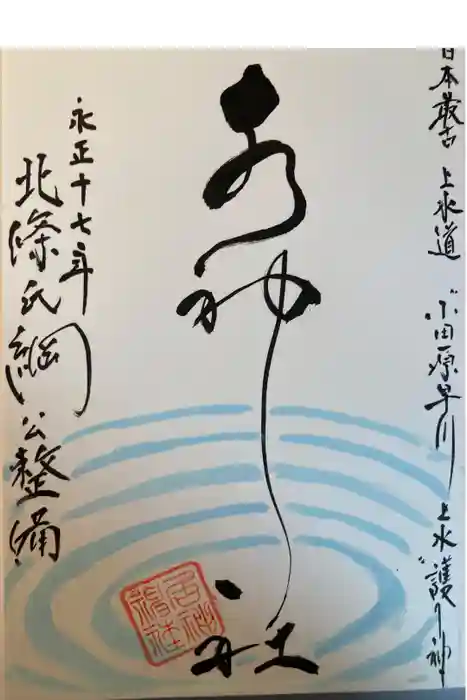 日本最古 上水道 "小田原早川 上水"護り神
水神社
永正十七年
北條氏綱公整備